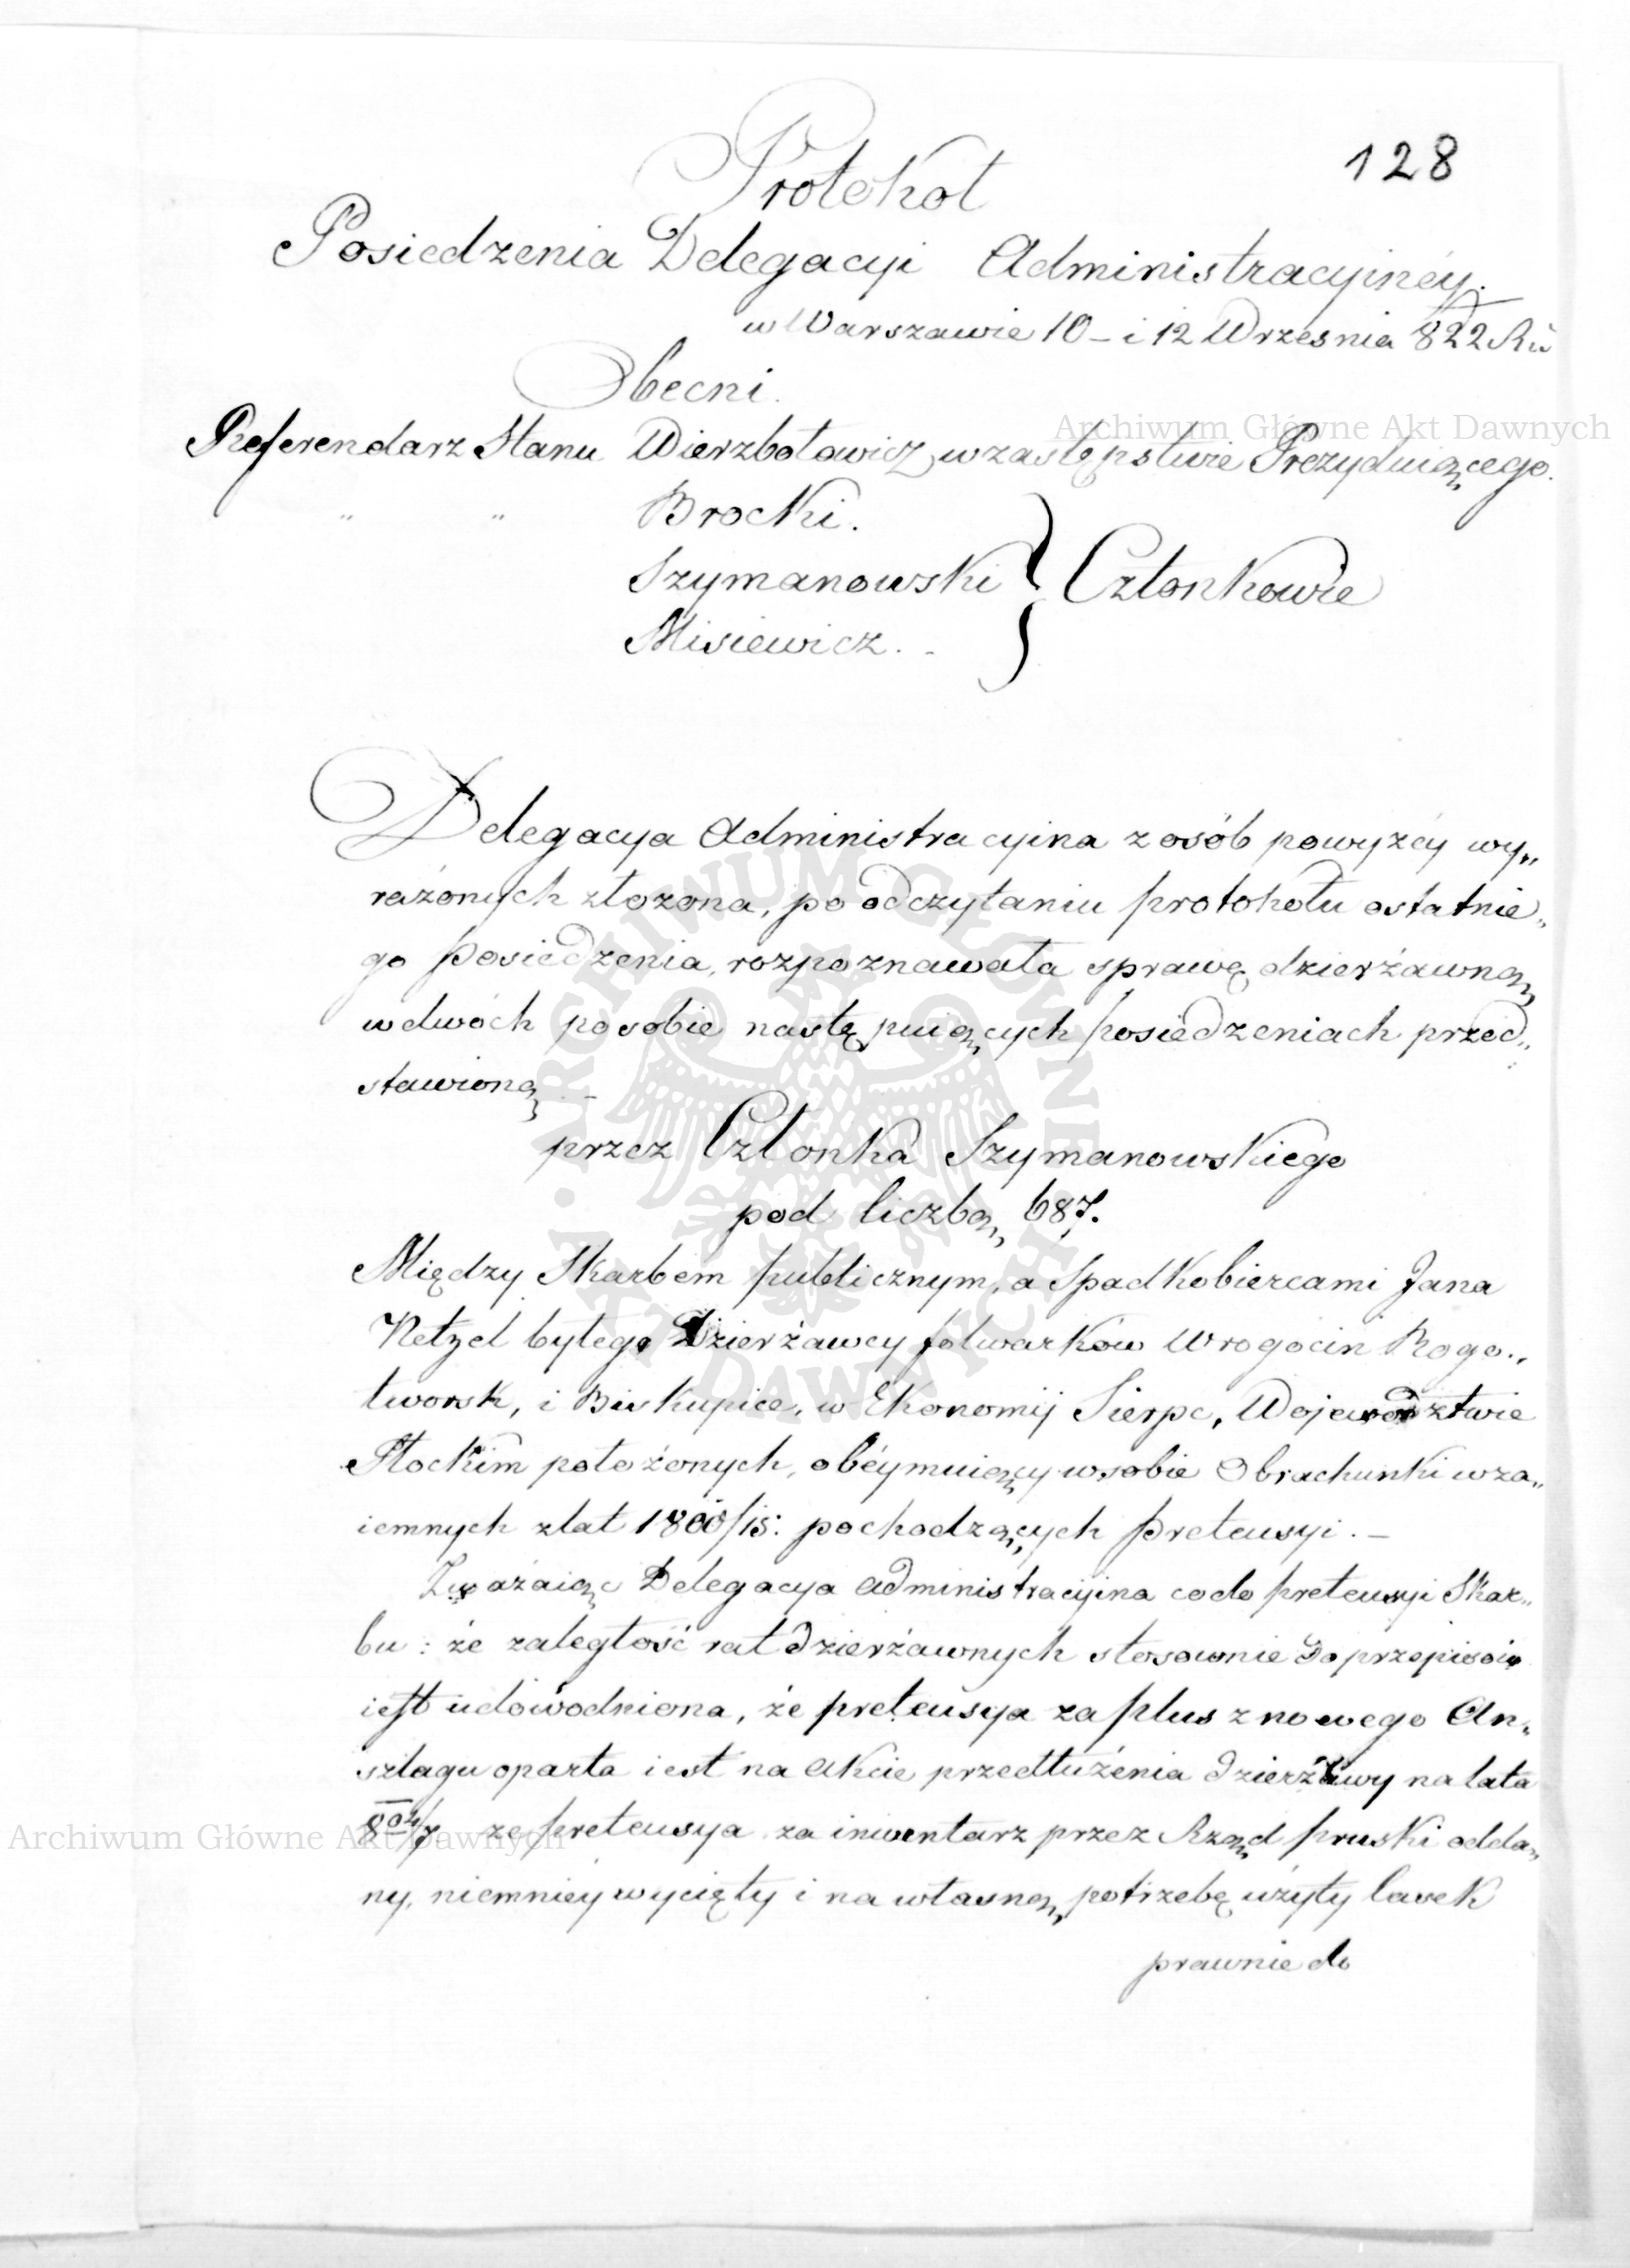 128
Protokół
Posiedzenia Delegacyi Administracyinéy.
w Warszawie 10 – i 12 Września 822 Ru
Obecni.
Archiwum Główne Akt Dawnych
Referendarz Stanu Wierzbołowicz w zastępstwie Prezyduiącego.
" " Brocki.
Szymanowski } Członkowie
Misiewicz. -
Delegacya Administracyina z osób powyżéy wy„
rażonych złożona, po odczytaniu protokołu ostatnie„
go posiedzenia, rozpoznawała sprawę dzierżawną
w dwóch po sobie następuiących posiedzeniach przed„
stawioną –
przez Członka Szymanowskiego
pod liczbą 687.
Między Skarbem publicznym, a Spadkobiercami Jana
Netzel byłego Dzierżawcy folwarków Wrogocin Rogo„
tworsk, i Biskupice, w Ekonomij Sierpc, Województwie
Płockim położonych, obéymuiący w sobie Obrachunki wza„
iemnych z lat 1800/15: pochodzących pretensyi. –
Zważaiąc Delegacya administracyina co do pretensyi Skar„
bu: że zaległość rat dzierżawnych stosownie do przepisów
iest udowodniona, że pretensya za plus z nowego An„
szlagu oparta iest na akcie przedłużenia dzierżawy na lata
804/7 że pretensya za inwentarz przez Rząd pruski odda„
ny, niemniéy wycięty i na własną potrzebę użyty lasek
prawnie do
Archiwum Główne Akt Dawnych
ARCHIWUM GŁÓWNE AKT DAWNYCH